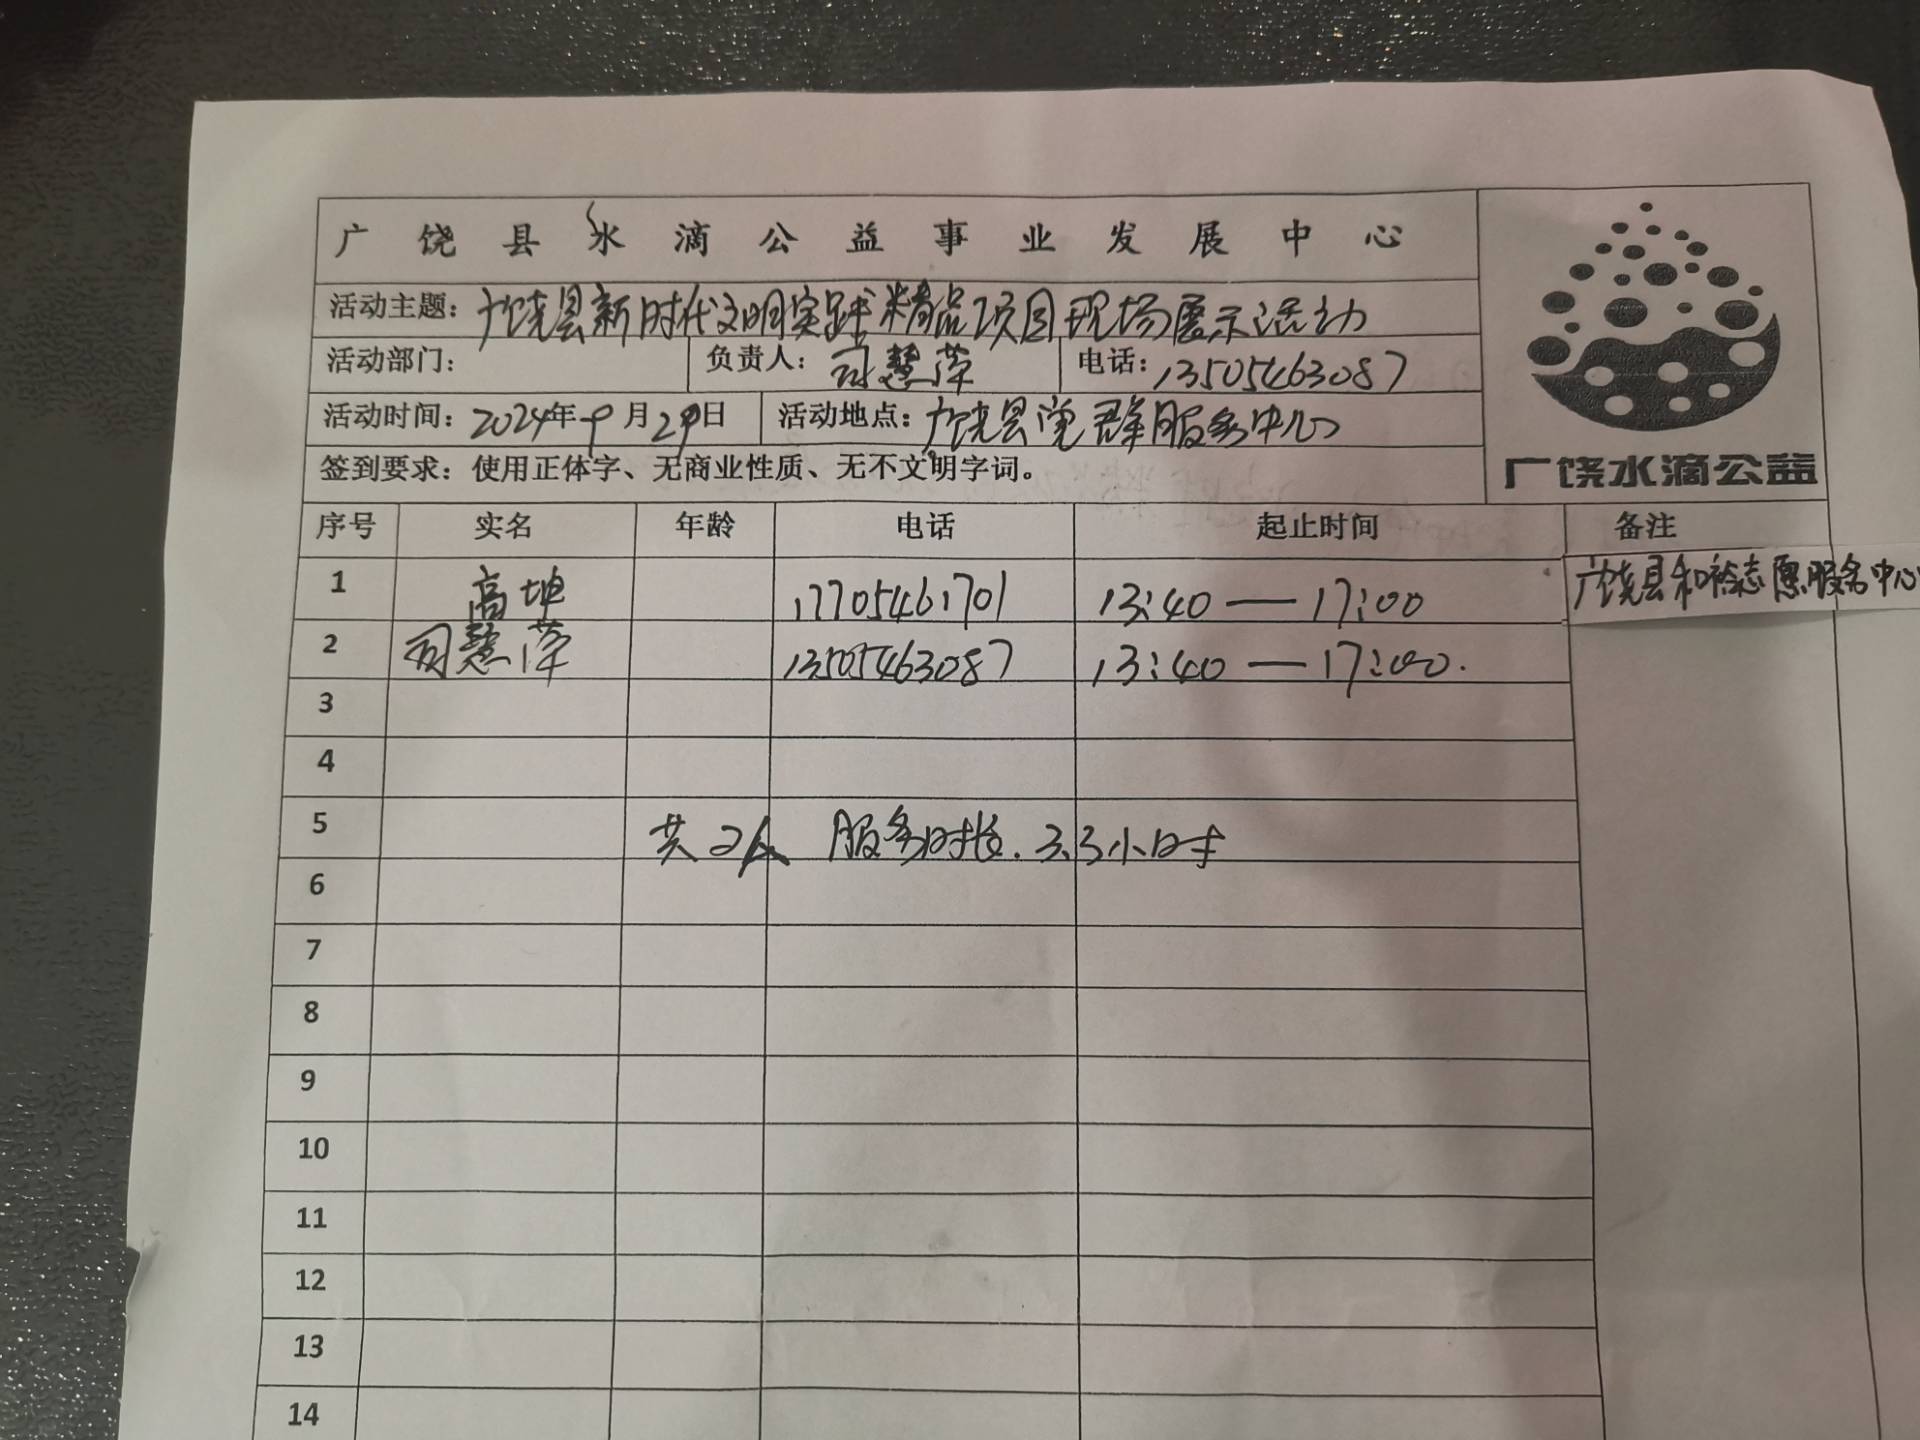 广饶县水滴公益事业发展中心
活动主题：广饶县新时代文明实践精品项目现场展示活动
活动部门： 负责人：司慧萍 电话：13505463087
活动时间：2024年9月29日 活动地点：广饶县党群服务中心
签到要求：使用正体字、无商业性质、无不文明字词。
广饶水滴公益
序号 实名 年龄 电话 起止时间 备注
1 高坤 17705461701 13:40—17:00 广饶县和裕志愿服务中心
2 司慧萍 13505463087 13:40—17:00.
3
4
5 共2人 服务时长.3.3小时
6
7
8
9
10
11
12
13
14